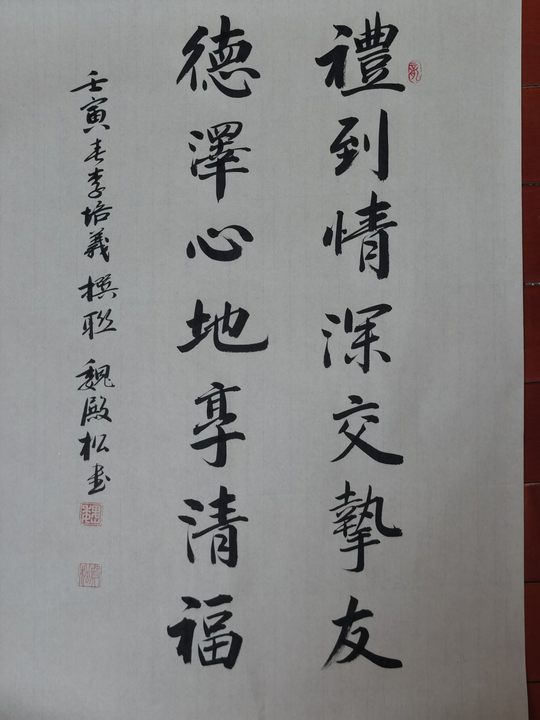 禮到情深交摯友
德澤心地享清福
壬寅春李培義撰聯 魏殿松書